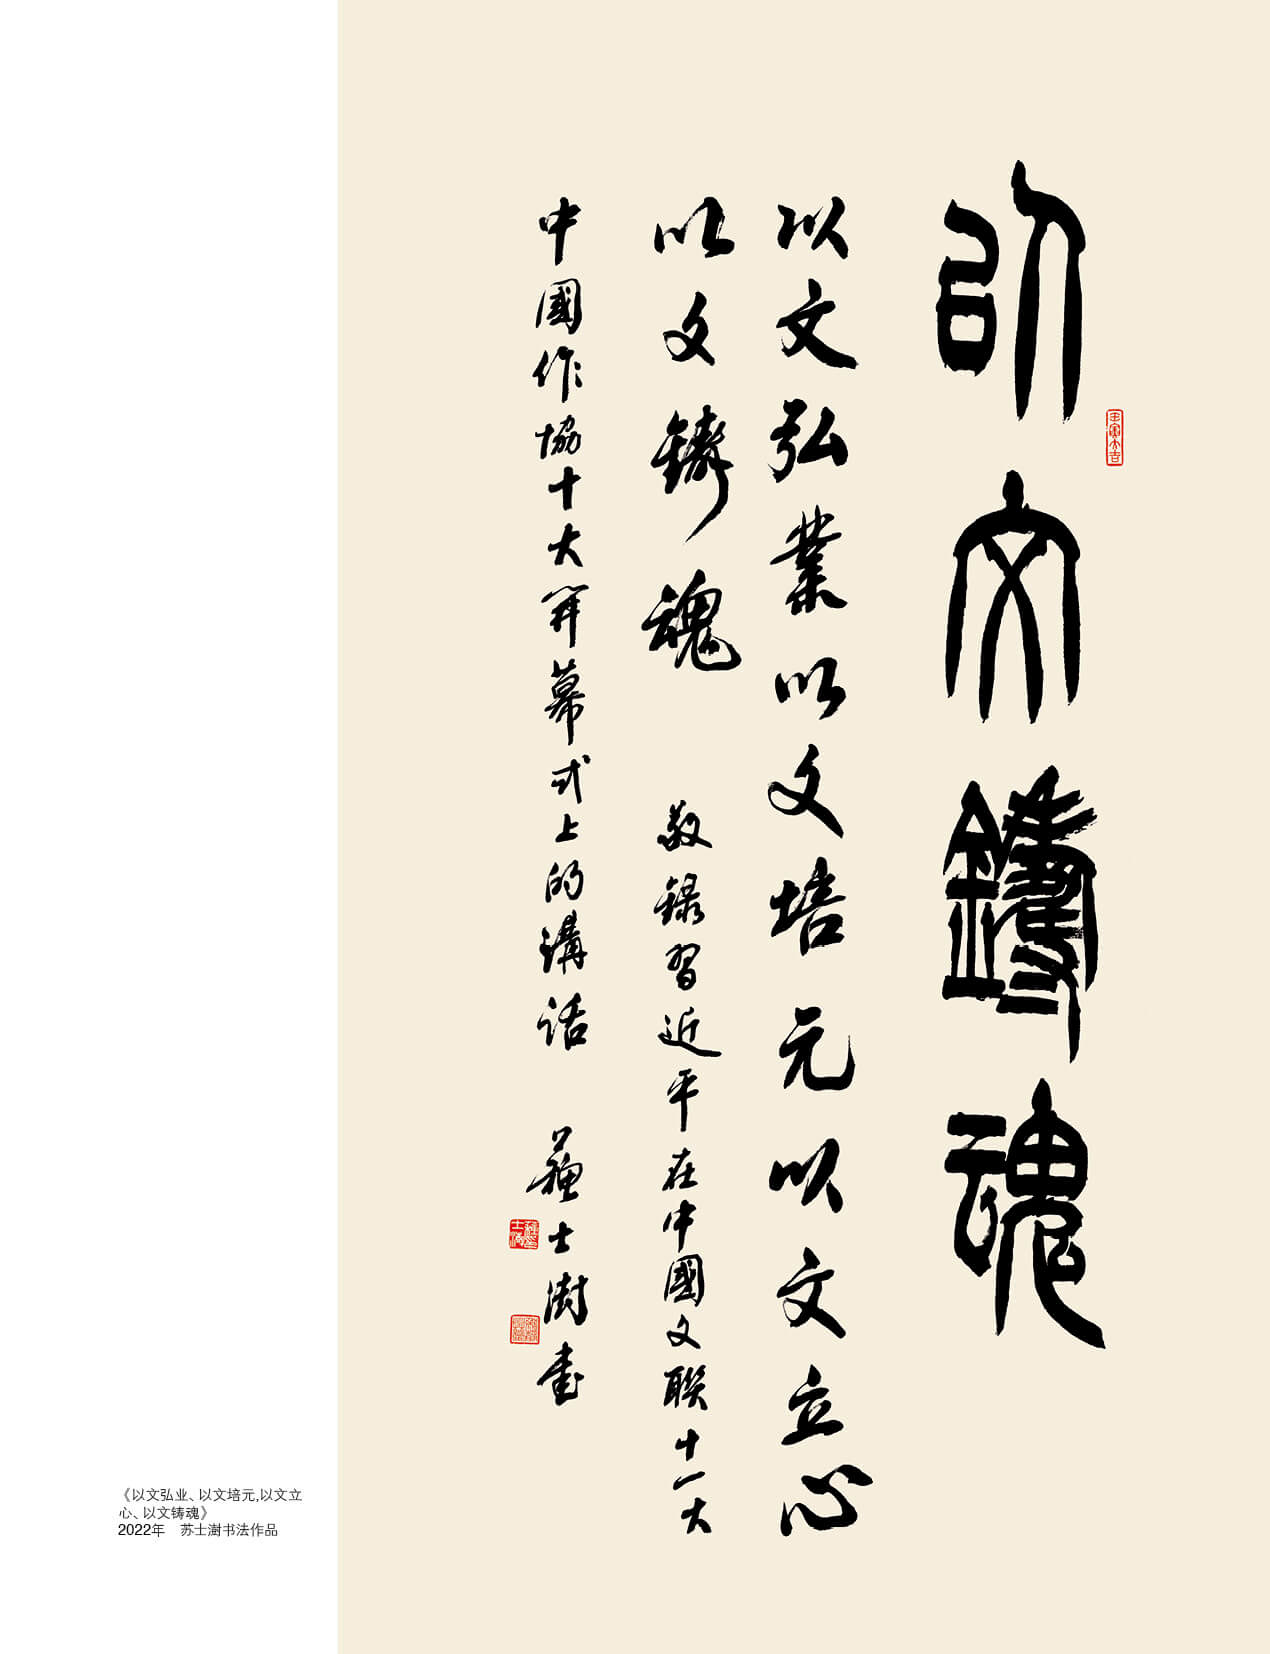 以文鑄魂
以文弘業以文培元以文立心
以文鑄魂 敬録習近平在中國文聯十一大
中國作協十大開幕式上的講話 蘇士澍書
《以文弘业、以文培元,以文立
心、以文铸魂》
2022年 苏士澍书法作品